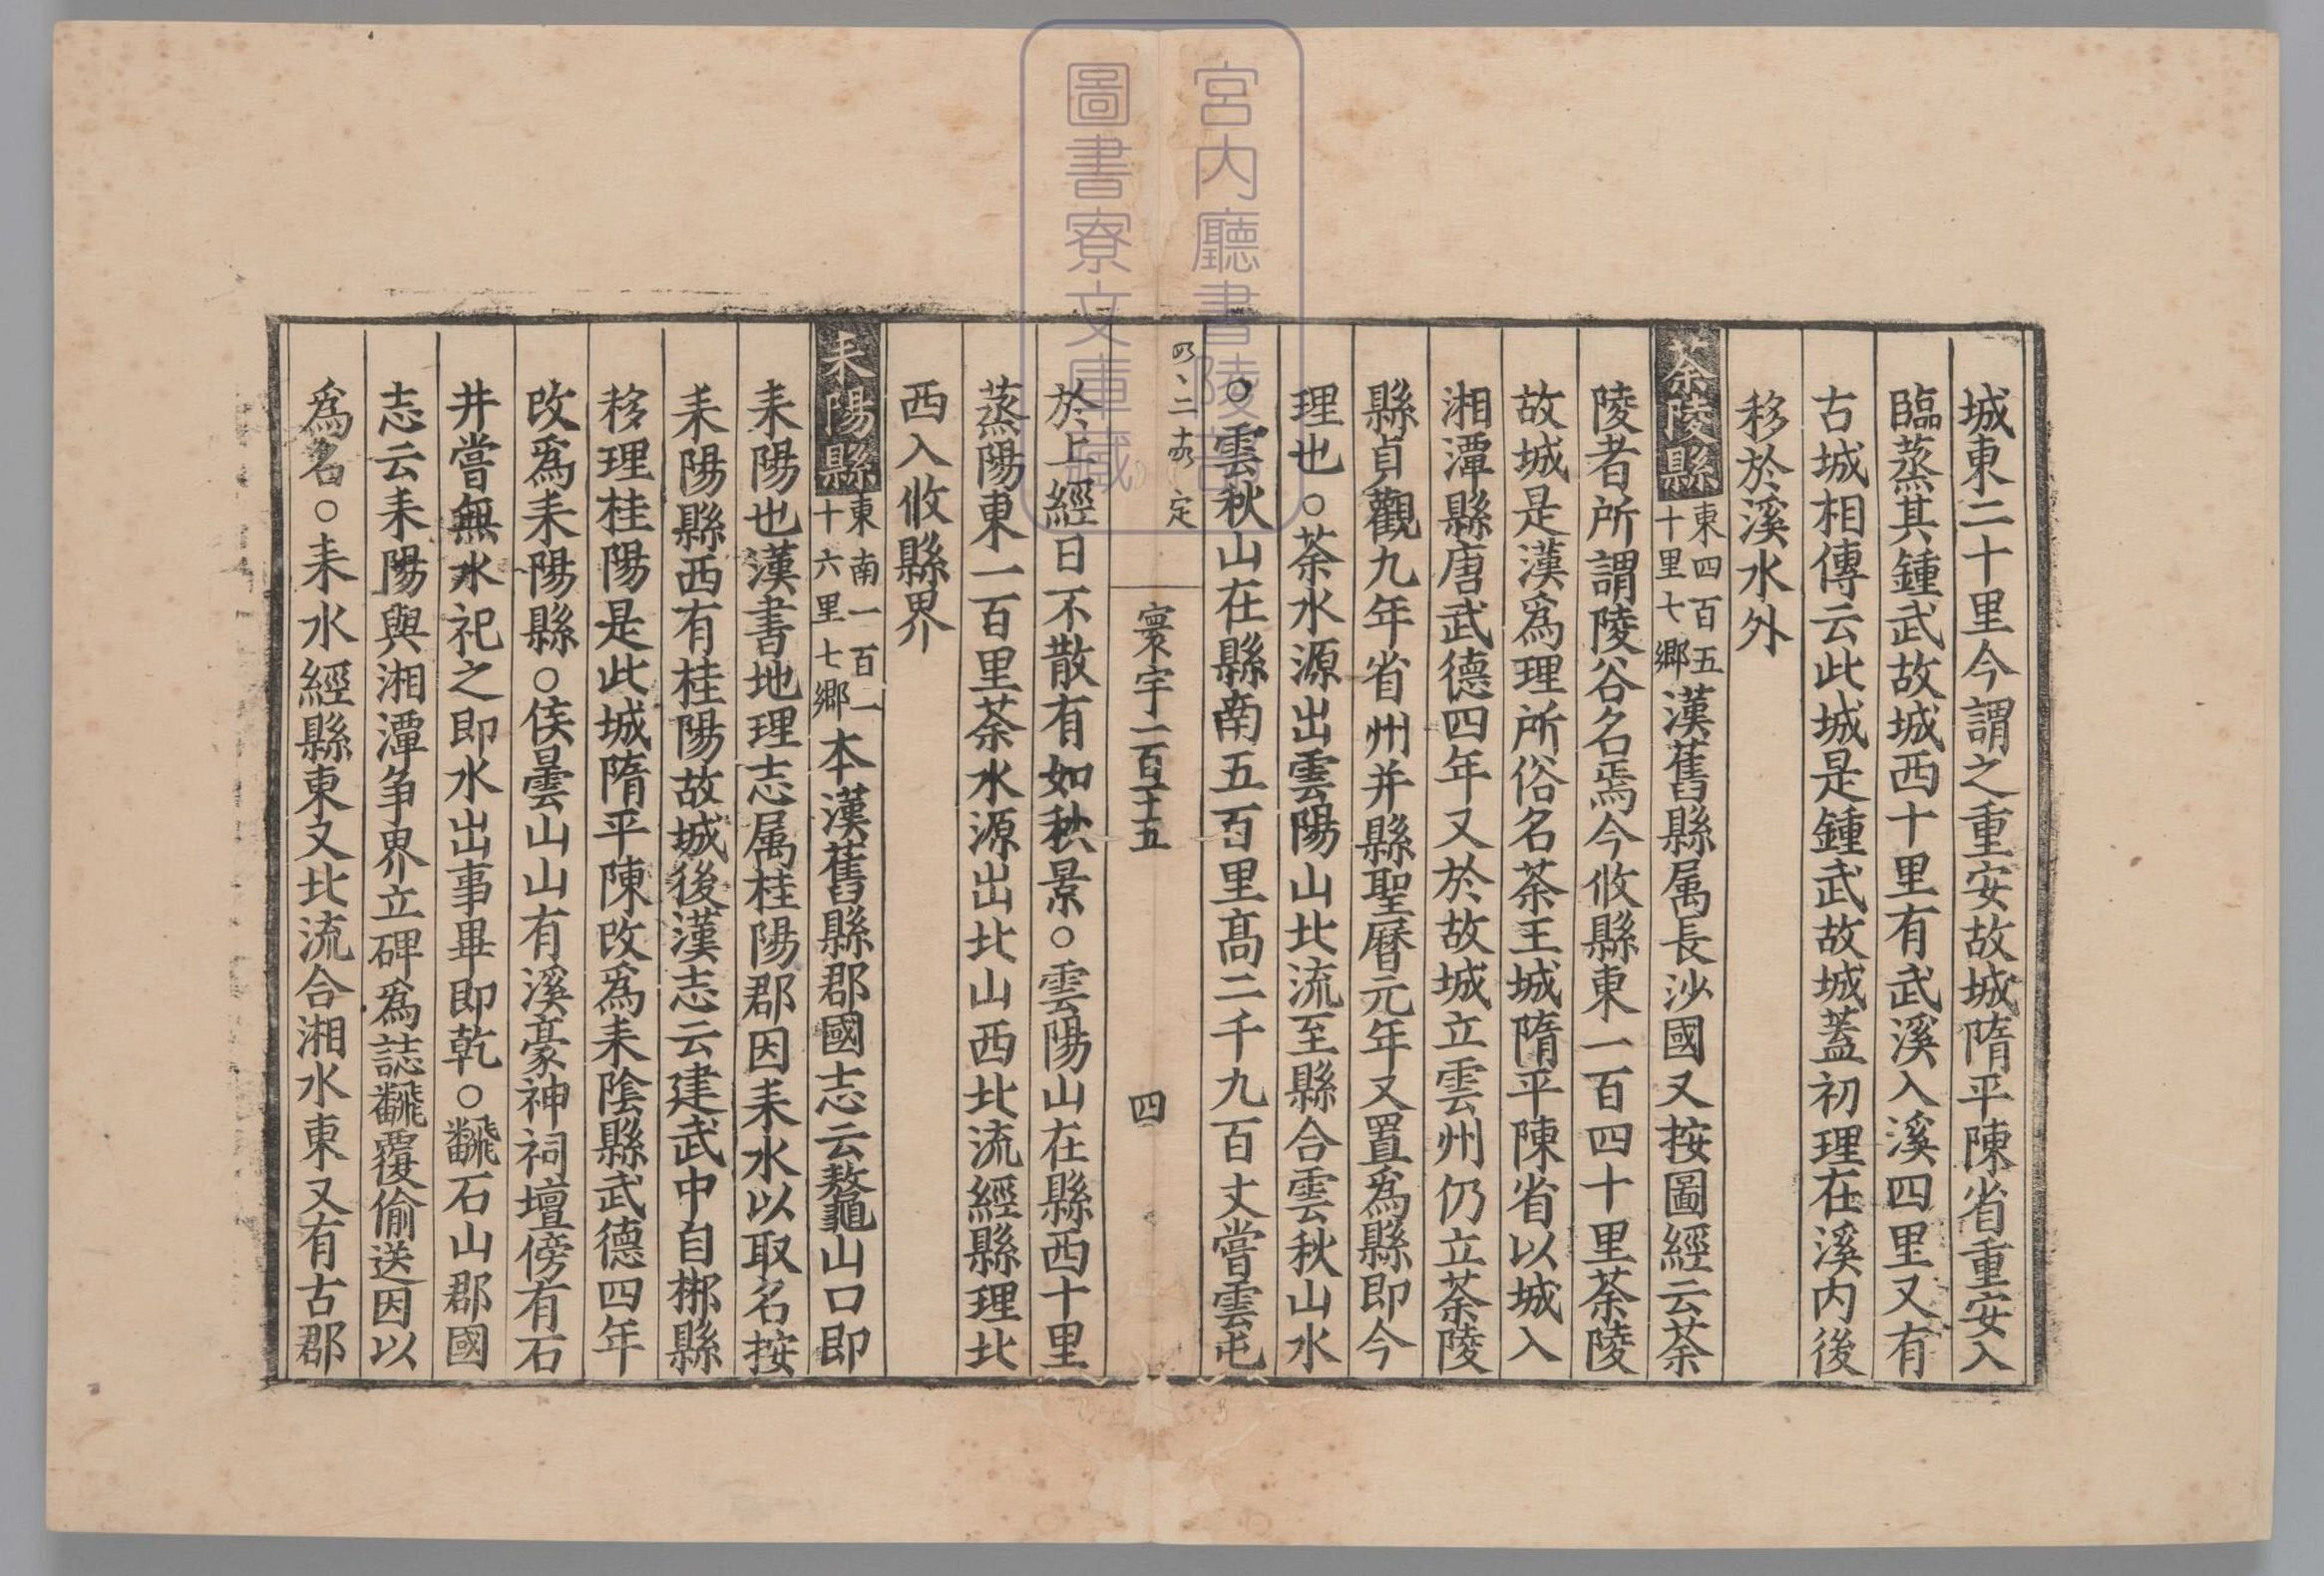 城東二十里今謂之重安故城隋平陳省重安入
臨蒸其鍾武故城西十里有武溪入溪四里又有
古城相傳云此城是鍾武故城蓋初理在溪内後
移於溪水外
茶陵縣東四百五十里七鄉漢舊縣属長沙國又按圖經云茶
陵者所謂陵谷名焉今攸縣東一百四十里茶陵
故城是漢爲理所俗名茶王城隋平陳省以城入
湘潭縣唐武德四年又於故城立雲州仍立茶陵
縣貞觀九年省州并縣聖曆元年又置爲縣即今
理也○茶水源出雲陽山北流至縣合雲秋山水
○雲秋山在縣南五百里髙二千九百丈嘗雲屯
寰宇一百十五
四
於上經日不散有如秋景○雲陽山在縣西十里
蒸陽東一百里茶水源出北山西北流經縣理北
西入攸縣界
耒陽縣東南一百二十六里七鄉本漢舊縣郡國志云鼇山口即
耒陽也漢書地理志属桂陽郡因耒水以取名按
耒陽縣西有桂陽故城後漢志云建武中自郴縣
移理桂陽是此城隋平陳改爲耒陰縣武德四年
改爲耒陽縣○侯曇山山有溪豪神祠壇傍有石
井嘗無水祀之即水出事畢即乾○飜石山郡國
志云耒陽與湘潭争界立碑爲誌飜覆偷送因以
爲名○耒水經縣東文北流合湘水東又有古郡
宮内廳書陵部
圖書寮文庫藏